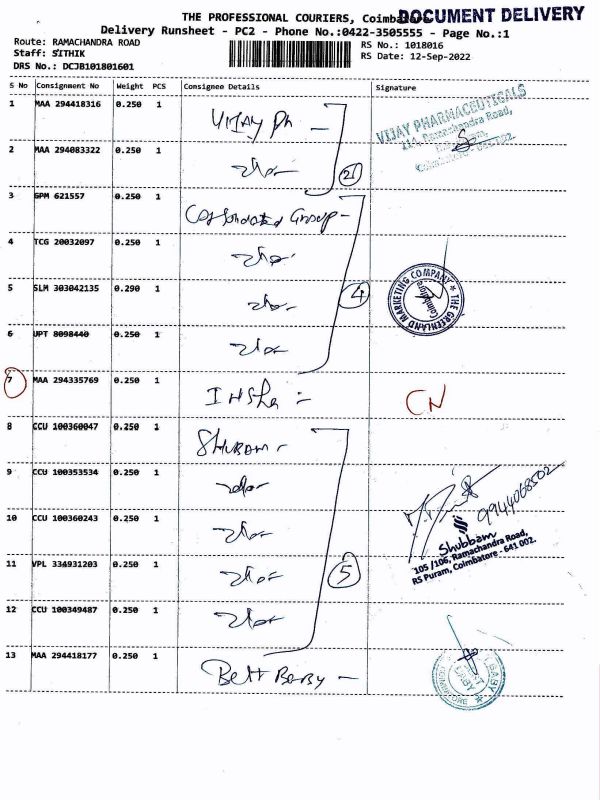 THE PROFESSIONAL COURIERS, Coimbatore
DOCUMENT DELIVERY
Delivery Runsheet - PC2 - Phone No.:0422-3505555 - Page No.:1
Route: RAMACHANDRA ROAD
RS No.: 1018016
Staff: SITHIK
RS Date: 12-Sep-2022
DRS No.: DCJB101801601
S No Consignment No Weight PCS Consignee Details Signature
1 MAA 294418316 0.250 1 VIJAY Ph —
VIJAY PHARMACEUTICALS
Ramachandra Road,
2 MAA 294083322 0.250 1
2
3 GPM 621557 0.250 1 Group -
4 TCG 20032097 0.250 1
5 SLM 303042135 0.290 1
4
THE GREENLAND MARKETING COMPANY
Coimbatore
6 UPT 8098440 0.250 1
7 MAA 294335769 0.250 1 CN
8 CCU 100360047 0.250 1 SHUBAM -
9 CCU 100353534 0.250 1
9944068502
10 CCU 100360243 0.250 1
Shubbam
105 /106, Ramachandra Road,
RS Puram, Coimbatore - 641 002.
11 VPL 334931203 0.250 1
5
12 CCU 100349487 0.250 1
13 MAA 294418177 0.250 1 Bett Baby -
BABY
COIMBATORE